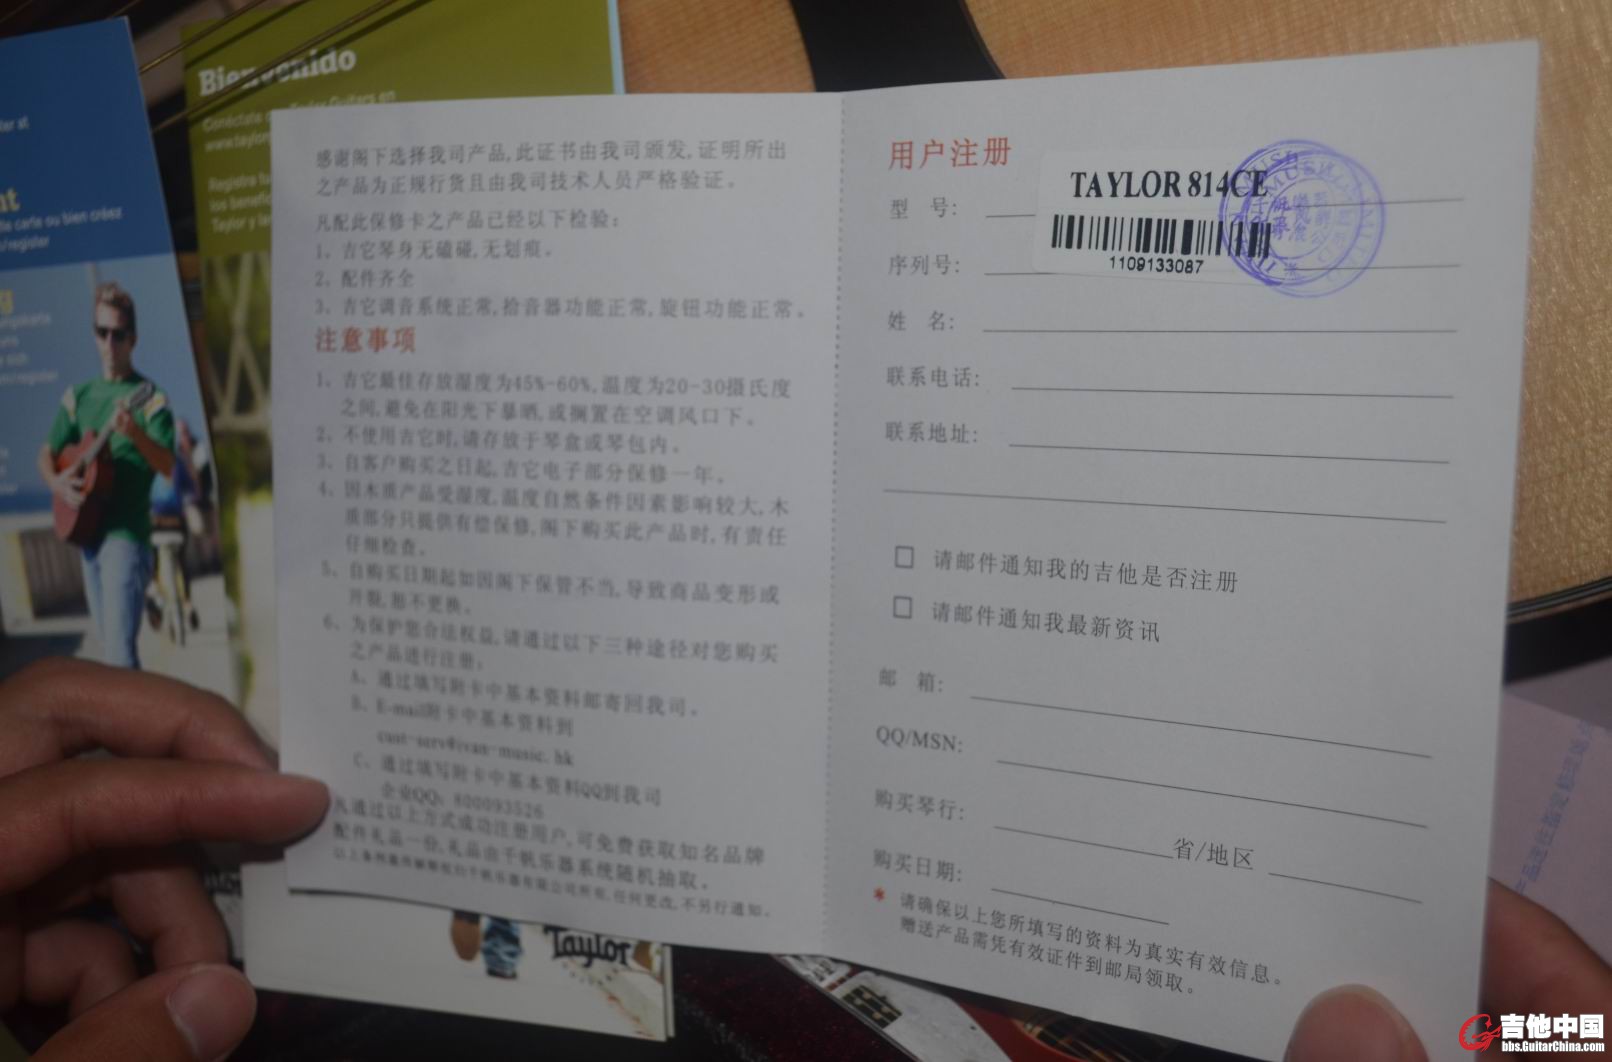 Bienvenido
Conéctate Taylor Guitars en
www.taylor
Registre
los benefic
Taylor y la
ter at
nt
lle carte ou bien créez
n/register
感谢阁下选择我司产品,此证书由我司颁发,证明所出
之产品为正规行货且由我司技术人员严格验证。
凡配此保修卡之产品已经以下检验:
1、吉它琴身无磕碰,无划痕。
2、配件齐全
3、吉它调音系统正常,拾音器功能正常,旋钮功能正常。
注意事项
1、吉它最佳存放湿度为45%-60%,温度为20-30摄氏度
之间,避免在阳光下暴晒,或搁置在空调风口下。
2、不使用吉它时,请存放于琴盒或琴包内。
3、自客户购买之日起,吉它电子部分保修一年。
4、因木质产品受湿度,温度自然条件因素影响较大,木
质部分只提供有偿保修,阁下购买此产品时,有责任
仔细检查。
5、自购买日期起如因阁下保管不当,导致商品变形或
开裂,恕不更换。
6、为保护您合法权益,请通过以下三种途径对您购买
之产品进行注册:
A、通过填写附卡中基本资料邮寄回我司。
B、E-mail附卡中基本资料到
cust-serv@ivan-music.hk
C、通过填写附卡中基本资料QQ到我司
企业QQ: 800093526
凡通过以上方式成功注册用户,可免费获取知名品牌
配件礼品一份,礼品由千帆乐器系统随机抽取。
以上条例最终解释权归千帆乐器有限公司所有,任何更改,不另行通知。
用户注册
型 号:
TAYLOR 814CE
序列号:
1109133087
姓 名:
联系电话:
联系地址:
请邮件通知我的吉他是否注册
请邮件通知我最新资讯
邮 箱:
QQ/MSN:
购买琴行:
省/地区
购买日期:
* 请确保以上您所填写的资料为真实有效信息。
赠送产品需凭有效证件到邮局领取。
Taylor
吉他中国
bbs.GuitarChina.com